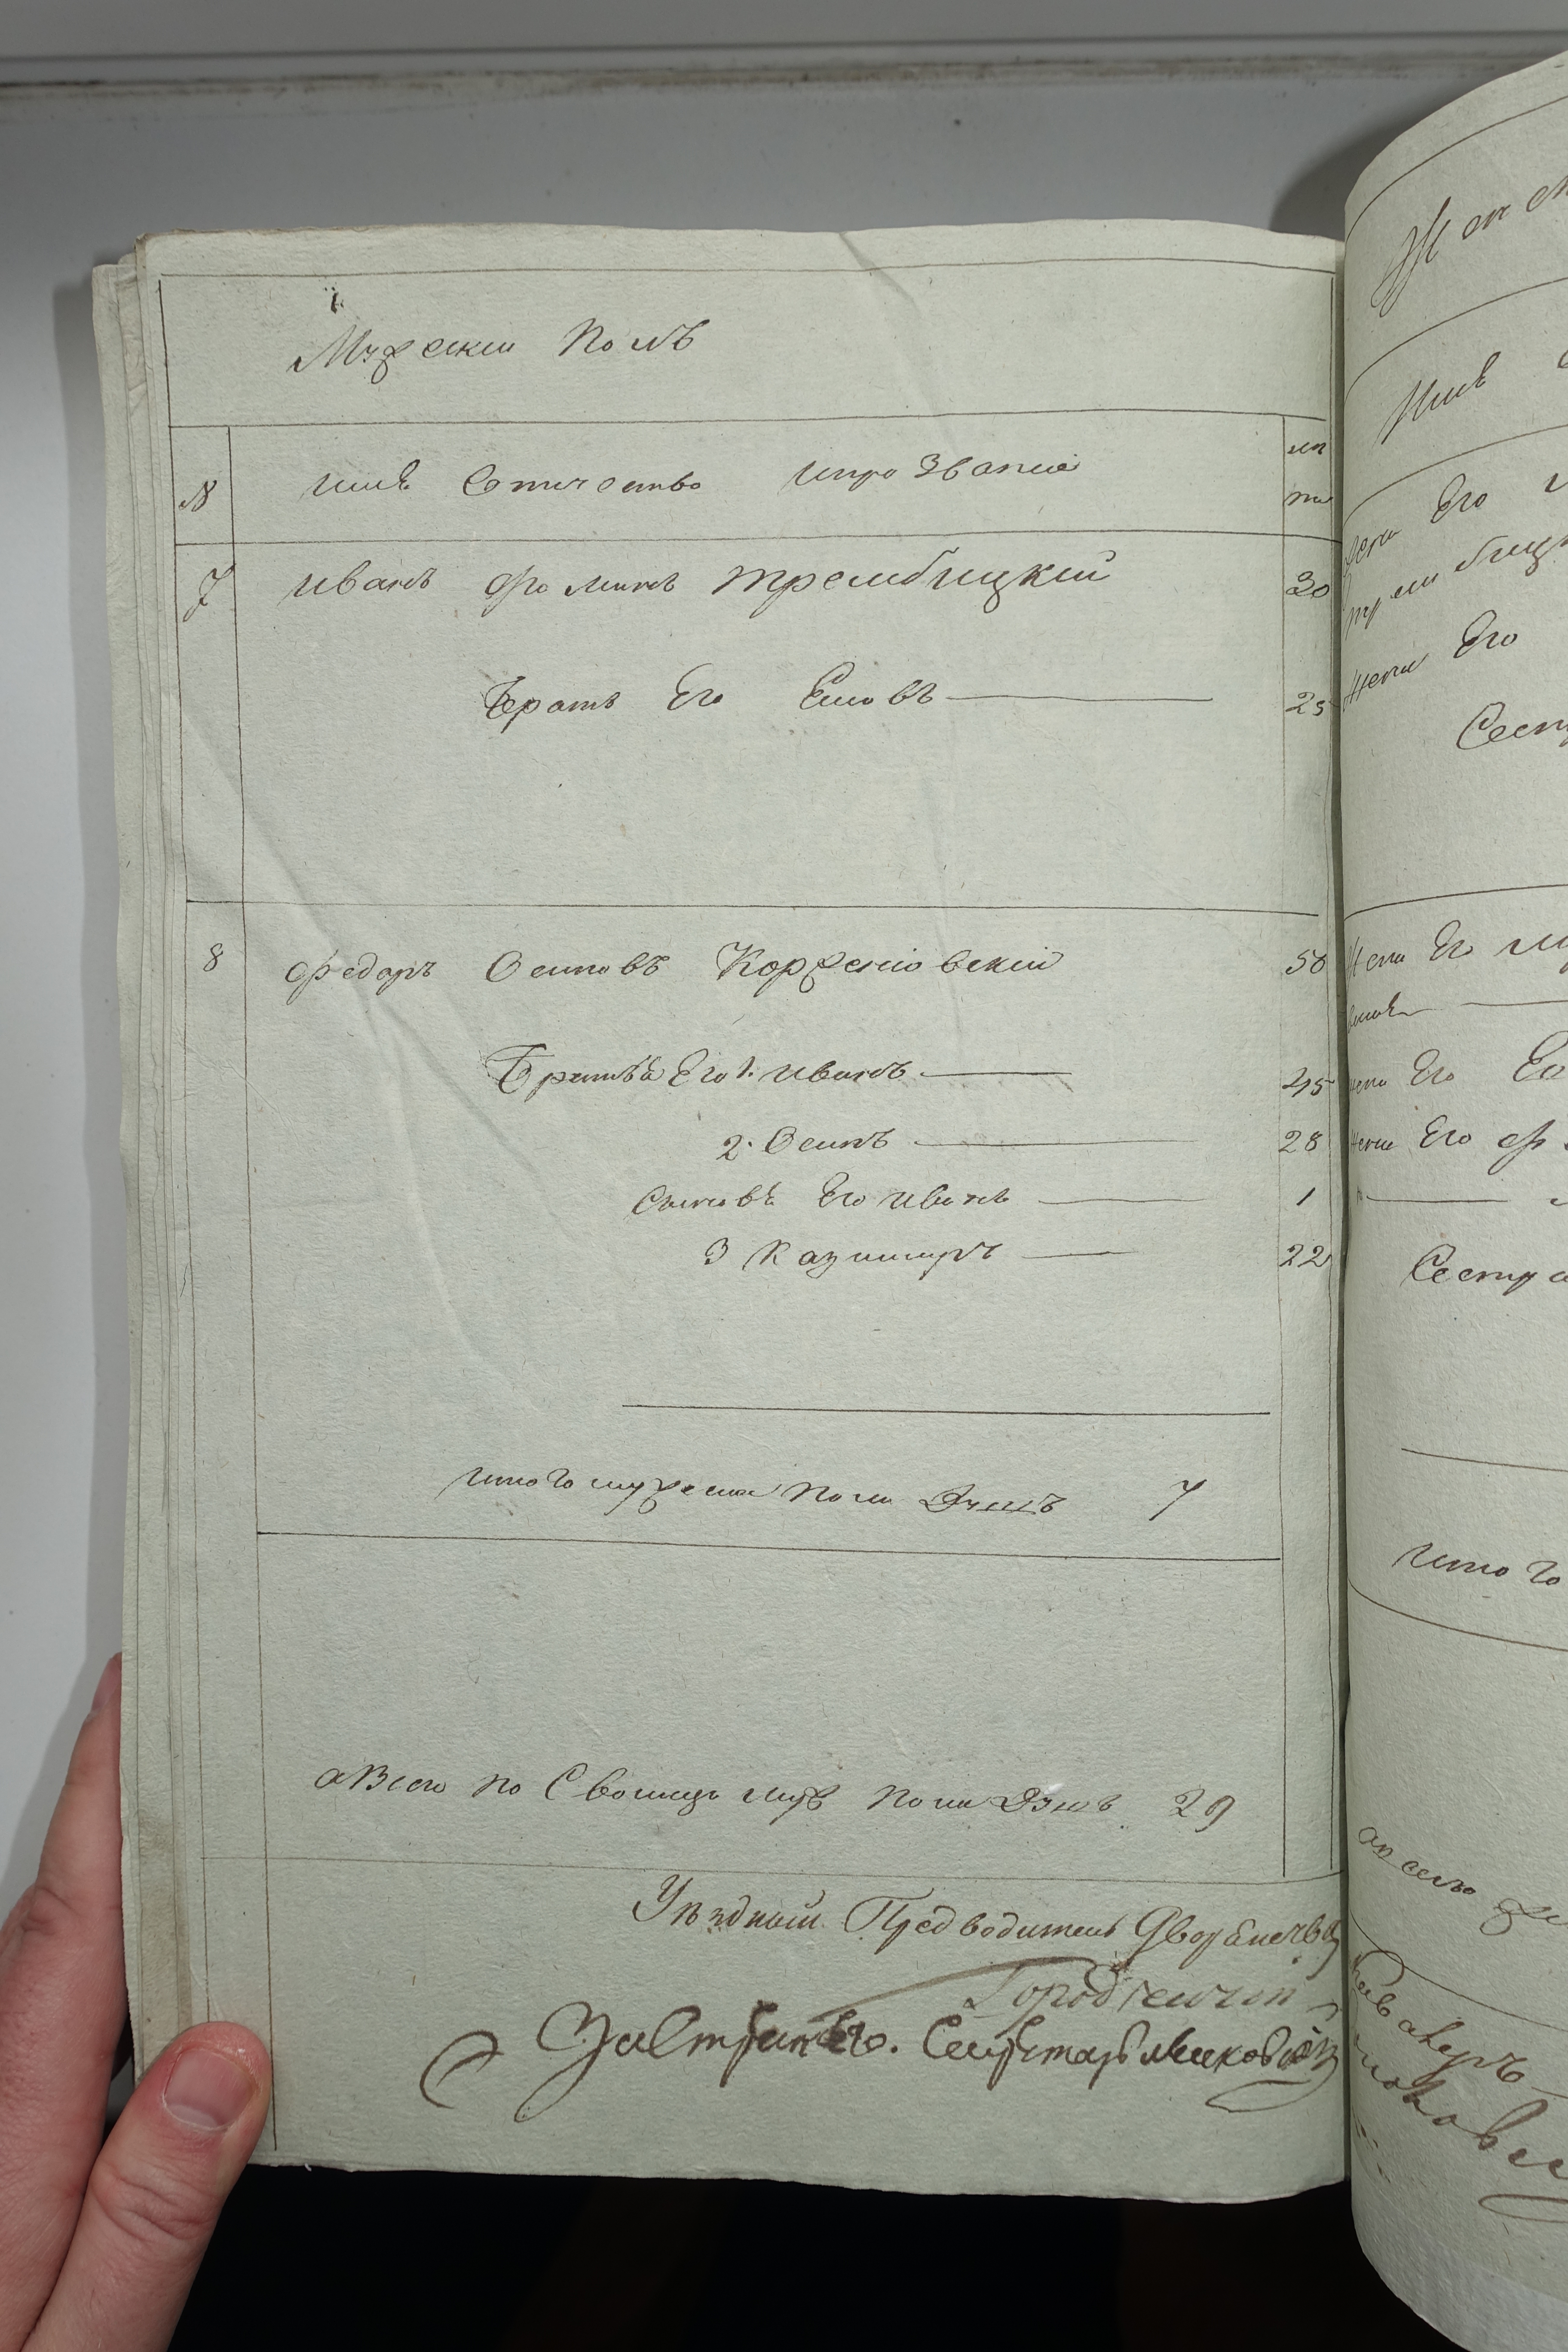 Мужеский полъ
№ имя Сотичество ипрозвание ле та
7 иванъ фоминъ трембицкий 30
братъ Его Есиовъ 25
8 федоръ Осиповъ Корженіовский 50
Братья Его 1. иванъ 45
2. Осипъ 28
Сыновъ Его иванъ 1
3 Казимиръ 22
итого мужеска пола душъ 7
авсего по Сволицы муж пола душъ 29
Уѣздный Предводитель Дворянства
Городиский
Секретарь
Жена Его
Трембицк
Жена Его
Сест
Жена Его
Жена Его
Жена Его
Сестра
итого